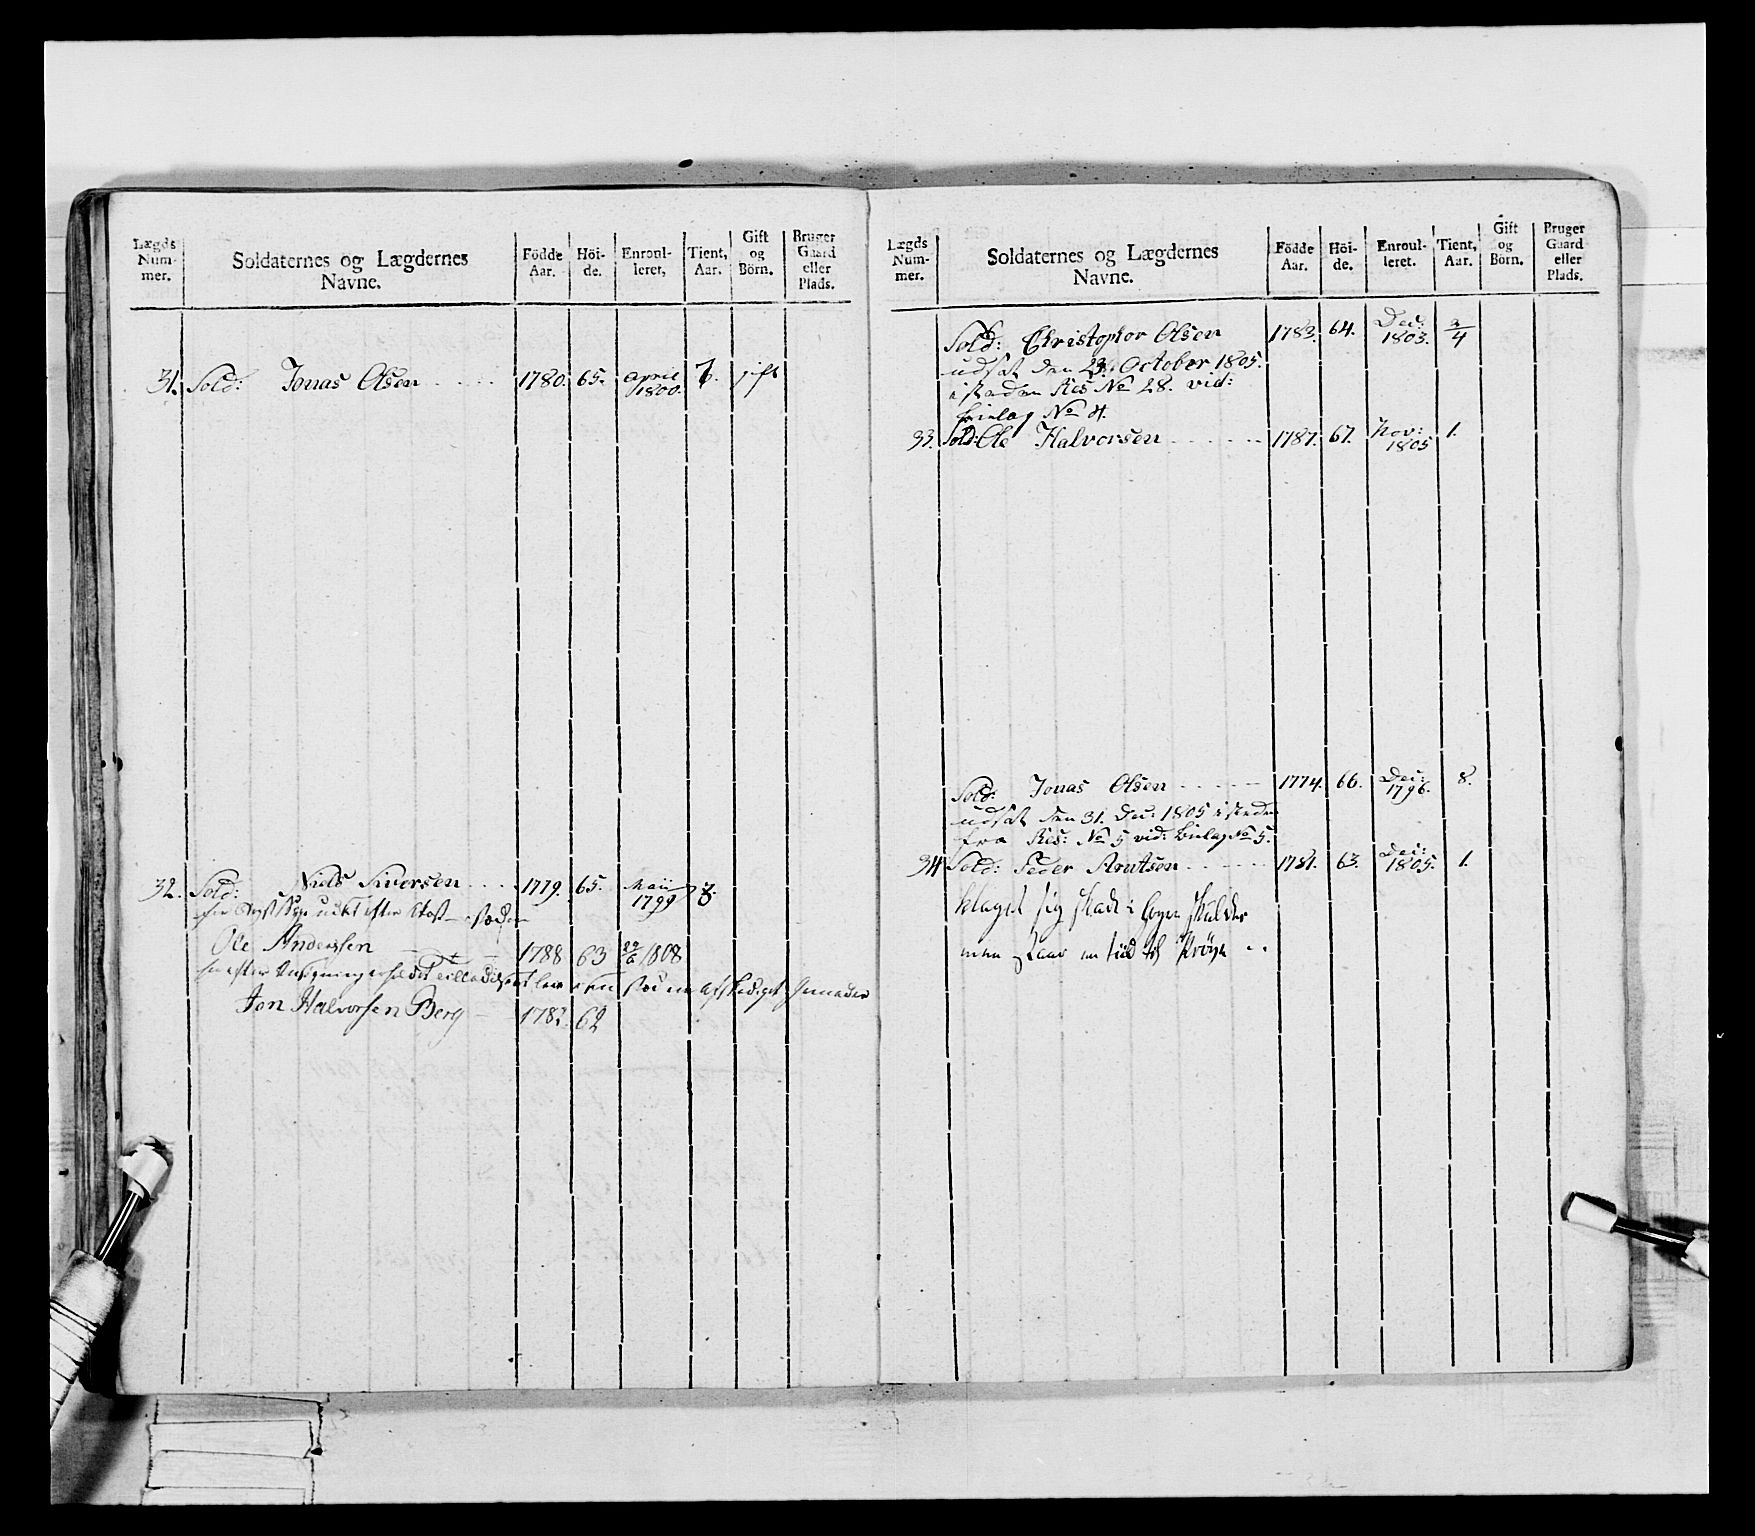 Lægds Num- mer. | Soldaternes og Lægdernes Navne. | Födde Aar. | Höi- de. | Enroul- leret, | Tient, Aar. | Gift og Börn. | Bruger Gaard eller Plads.
31. Sold: Jonas Olsen 1780. 65. April 1800. gift
32. Sold: Niels Siversen 1779. 65. Maii 1799 8.
Ole Anderssen 1788 63 29/6 1808
Jon Halvorsen Berg 1782 62
Lægds Num- mer. | Soldaternes og Lægdernes Navne. | Födde Aar. | Höi- de. | Enroul- leret. | Tient, Aar. | Gift og Börn. | Bruger Gaard eller Plads.
Sold: Christophor Olsen 1783. 64. Dec: 1803. 3/4
udsat den 23. October 1805.
i steden Res No 28. vid:
bielag No 4.
33. Sold: Ole Halvorsen 1787. 67. Nov: 1805 1.
Sold: Jonas Olsen 1774. 66. Dec: 1796. 8.
udsat den 31. Dec: 1805 i steden
fra Res: No 5 vid: bielag No 5.
34 Sold: Peder Arntsen 1781. 63. Dec: 1805. 1.
klaget sig skade i høyre skulder
men staar en tiid til Prøye